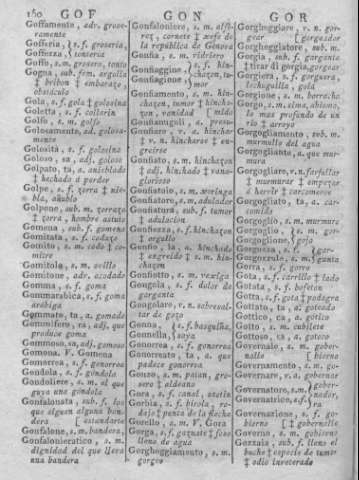 160 GOF GON GOR
Goffamente, adv. grose-
ramente
Gofferia, s. f. groseria,
Goffezza ‡ tonteria
Goffo, s. m. grosero, tonto
Gogna, sub. fem. argolla
‡ bribon ‡ embarazo,
obstáculo
Gola, s. f. gola ‡ golosina
Goletta, s. f. collarin
Golfo, s. m. golfo
Golosamente, ad. golosa-
mente
Golosità, s. f. golosina
Goloso, sa, adj. goloso
Golpato, ta, a. anieblado
‡ hechado a perder
Golpe, s. f. zorra ‡ nie-
bla, añublo
Golpone, sub. m. zorrazo
‡ zorra, hombre astuto
Gomena, sub. f. gomena
Gomitata, s. f. codazo
Gomito, s. m. codo ‡ co-
mitre
Gomitolo, s. m. ovillo
Gomitone, adv. acodado
Gomma, s. f. goma
Gommarabica, s. f. goma
arabiga
Gommato, ta, a. gomado
Gommifero, ra, adj. que
produce goma
Gommoso, sa, adj. gomoso
Gomona, V. Gomena
Gomorrea, s. f. gonorrea
Gondola, s. f. góndola
Gondoliere, s. m. el que
guya una góndola
Gonfalonata, sub. f. los
que siguen alguna ban-
dera [ estandarte
Gonfalone, s. m. bandera,
Gonfalonieratico, s. m.
dignidad del que lleva
una bandera
Gonfaloniere, s. m. alfe-
rez, cornete ‡ xefe de
la república de Génova
Gonfia, s. m. vidriero
Gonfiaggine, s. f. hin-
Gonfiagione chazon, tu-
mor
Gonfiamento, s. m. hin-
chazon, tumor ‡ hincha-
zon, vanidad [ miedo
Gonfianugoli, a. presu-
Gonfiare, v. a. hinchar
‡ v. n. hincharse ‡ en-
greirse
Gonfiato, s. m. hinchazon
‡ adj. hinchado ‡ vana-
glorioso
Gonfiatoio, s. m. xeringa
Gonfiatore, s. m. adulador
Gonfiatura, sub. f. tumor
‡ adulacion
Gonfiezza, s. f. hinchazon
‡ orgullo
Gonfio, ia, a. hinchado
‡ engreido ‡ s. m. hin-
chazon
Gonfiotto, s. m. vexiga
Gongola, s. f. dolor de
garganta
Gongolare, v. n. sobresal-
tar de gozo
Gonna, s. f. basquiña,
Gonnella, saya
Gonorrea, s. f. gonorrea
Gonorreato, ta, a. que
padece gonorrea
Gonzo, s. m. paian, gro-
sero ‡ aldeano
Gora, s. f. canal, azatin
Gorbia, s. f. birola, ro-
daja ‡ punta de la flecha
Gorello, s. m. V. Gora
Gorga, s. f. gaznate ‡ foso
lleno de agua
Gorgheggiamento, s. m.
gorgeo
Gorgheggiare, v. n. gor-
gear [ gorgeador
Gorgheggiatore, sub. m.
Gorgia, sub. f. garganta
‡ tirar di gorgia, gorgear
Gorgiera, s. f. gorguera,
lechuguilla, gola
Gorgione, s. m. borracho
Gorgo, s. m. olma, abismo,
lo mas profundo de un
rio ‡ arroyo
Gorgogliamento, sub. m.
murmullo del agua
Gorgogliante, a. que mur-
mura
Gorgogliare, v. n. farfullar
‡ murmurar ‡ ampezar
a hervir ‡ carcomerse
Gorgogliato, ta, a. car-
comido
Gorgoglio, s. m. murmure
Gorgoglio, s. m. gor-
Gorgoglione, gojo
Gorgozza, s. f. gar-
Gorgozzule, s. m. ganta
Gorra, s. f. gorro
Gota, s. f. carrillo ‡ lado
Gotata, s. f. bofeton
Gotta, s. f. gota ‡ podagra
Gottato, ta, a. goteado
Gottico, ca, a. gotico
Gotto, s. m. cubilete
Gottoso, ca, a. gotoso
Governale, s. m. gober-
nallo [ bierno
Governamento, s. m. go-
Governare, v. a. gobernar
Governatore, s. m. gober-
Governatrice, s. f. nador,
ra
Governazione, s. f. go-
bierno [ ‡ gobernalle
Governo, s. m. gobierno
Gozzaia, sub. f. lleno el
buche ‡ especie de tumor
‡ odio inveterado